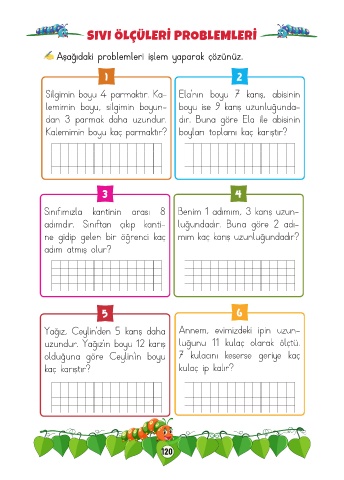 SIVI ÖLÇÜLERİ PROBLEMLERİ
Aşağıdaki problemleri işlem yaparak çözünüz.
1
Silgimin boyu 4 parmaktır. Ka-
lemimin boyu, silgimin boyun-
dan 3 parmak daha uzundur.
Kalemimin boyu kaç parmaktır?
2
Ela'nın boyu 7 karış, abisinin
boyu ise 9 karış uzunluğunda-
dır. Buna göre Ela ile abisinin
boyları toplamı kaç karıştır?
3
Sınıfımızla kantinin arası 8
adımdır. Sınıftan çıkıp kanti-
ne gidip gelen bir öğrenci kaç
adım atmış olur?
4
Benim 1 adımım, 3 karış uzun-
luğundadır. Buna göre 2 adı-
mım kaç karış uzunluğundadır?
5
Yağız, Ceylin'den 5 karış daha
uzundur. Yağız'ın boyu 12 karış
olduğuna göre Ceylin'in boyu
kaç karıştır?
6
Annem, evimizdeki ipin uzun-
luğunu 11 kulaç olarak ölçtü.
7 kulacını keserse geriye kaç
kulaç ip kalır?
120